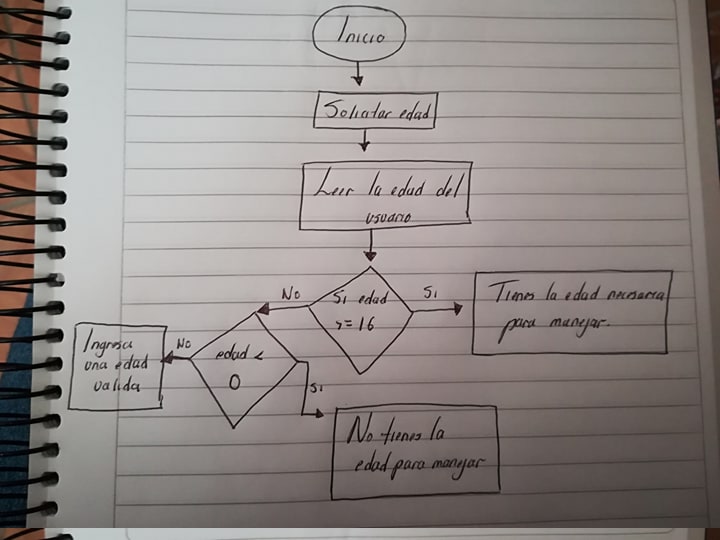 Inicio
Solicitar edad
Leer la edad del
usuario
Si edad
>= 16
No
Si
Tienes la edad necesaria
para manejar.
edad <
0
No
Si
Ingresa
una edad
valida
No tienes la
edad para manejar